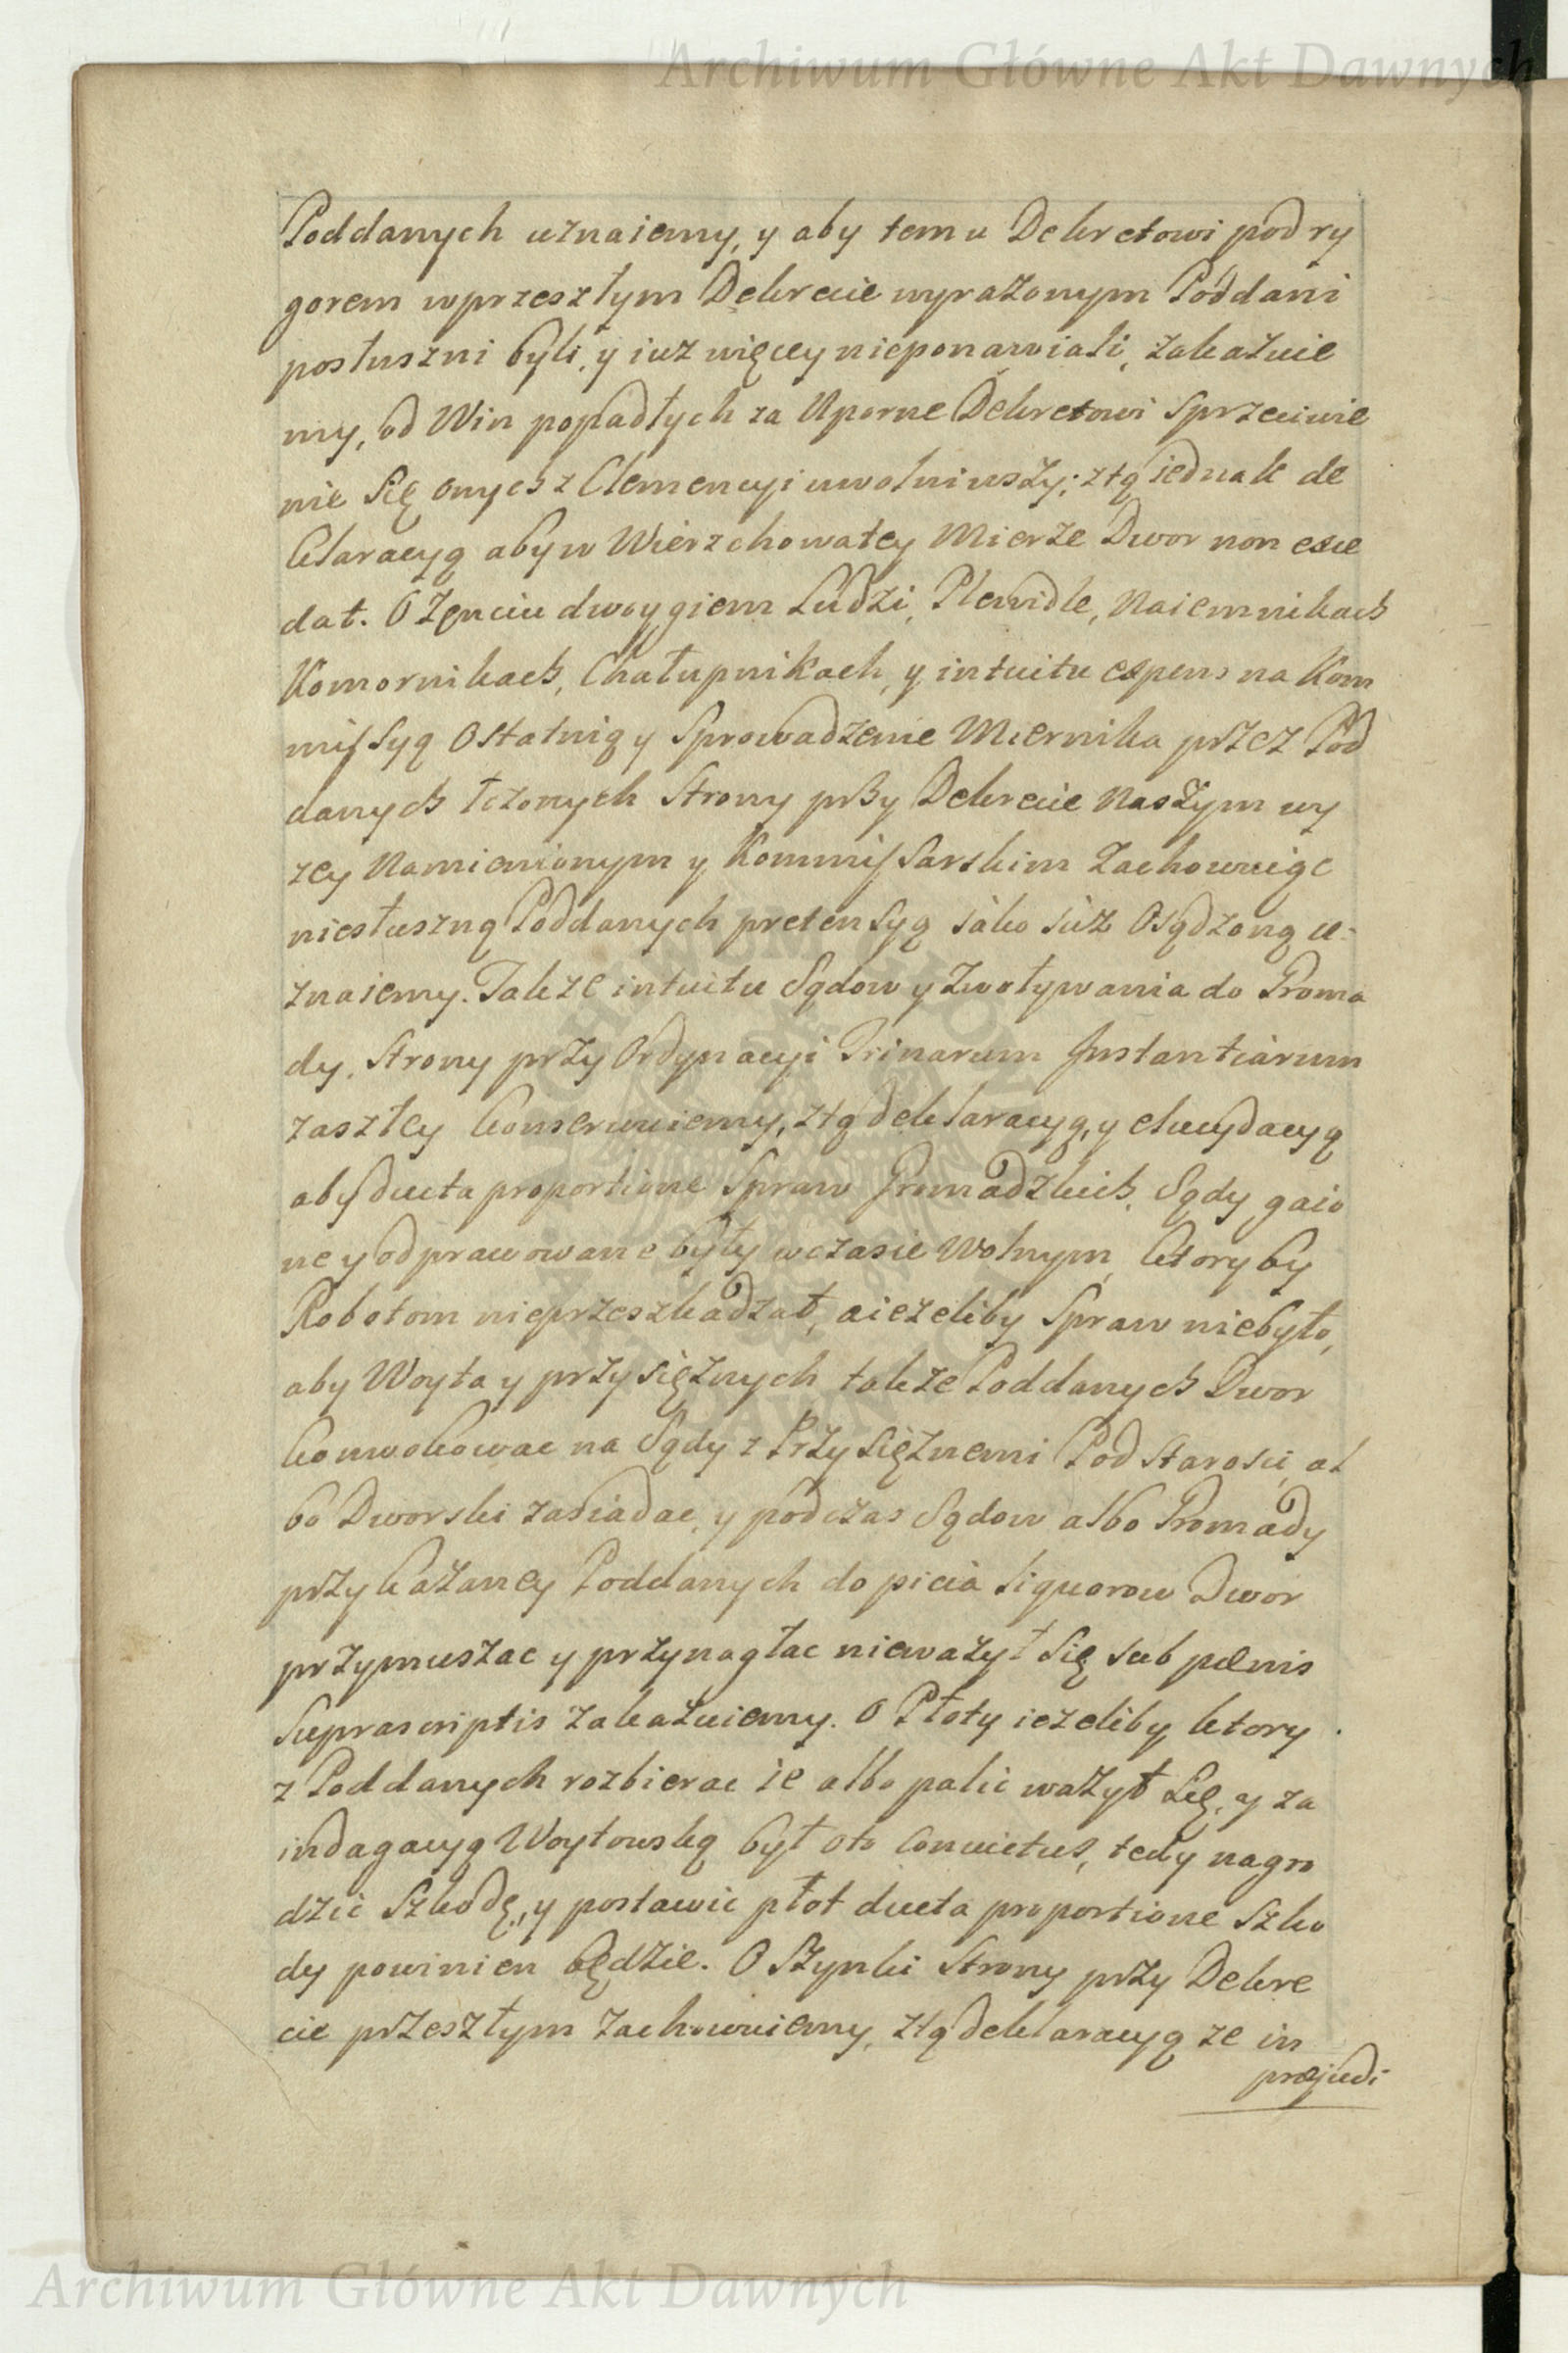 Archiwum Główne Akt Dawnych
Poddanych uznaiemy, y aby temu Dekretowi pod ry
gorem wprzeszłym Dekrecie wyrażonym Poddani
posłuszni byli, y iuz więcey nieponawiali, zakażuie
my, od Win popadłych za Uporne Dekretowi Sprzeciwie
nie Się onych z Clemencyi uwolniwszy; ztą iednak de
klaracyą aby w Wierzchowatey Mierze Dwor non exce
dat. O Zęnciu dwoygiem Ludzi, Plewidle, Naiemnikach
Komornikach, Chałupnikach, y intuitu expens na Kom
missyą Ostatnią y Sprowadzenie Miernika przez Pod
danych łozonych Strony przy Dekrecie Naszym wy
zey Namienionym y Kommissarskim Zachowuiąc
niesłuszną Poddanych pretensyą iako iuż Osądzoną u=
znaiemy. Takze intuitu Sądow y Zwoływania do Groma
dy, Strony przy Ordynacyi Trinarum Instantiarum
zaszłey konserwuiemy, ztą deklaracyą, y elucydacyą
aby ducta proportione Spraw Gromadzkich, Sądy gaio
ne y odprawowane były wczasie Wolnym, ktory by
Robotom nieprzeszkadzał, aieżeliby Spraw niebyło,
aby Woyta y przysiężnych takze Poddanych Dwor
konwokowac na Sądy z Przysiężnemi Pod Starosci, al
bo Dworski zasiadac, y podczas Sądow albo Gromady
przykażaney Poddanych do picia liquorow Dwor
przymuszac y przynaglac nieważył Się sub pœnis
Suprascriptis zakażuiemy. O Płoty ieżeliby ktory
z Poddanych rozbierac ie albo palic ważył Się, y za
indagacyą Woytowską był oto convictus, tedy nagro
dzic Szkodę, y postawic płot ducta proportione Szko
dy powinien będzie. O Szynki Strony przy Dekre
cie przeszłym zachowuiemy, ztą deklaracyą ze in
præjudi
Archiwum Główne Akt Dawnych